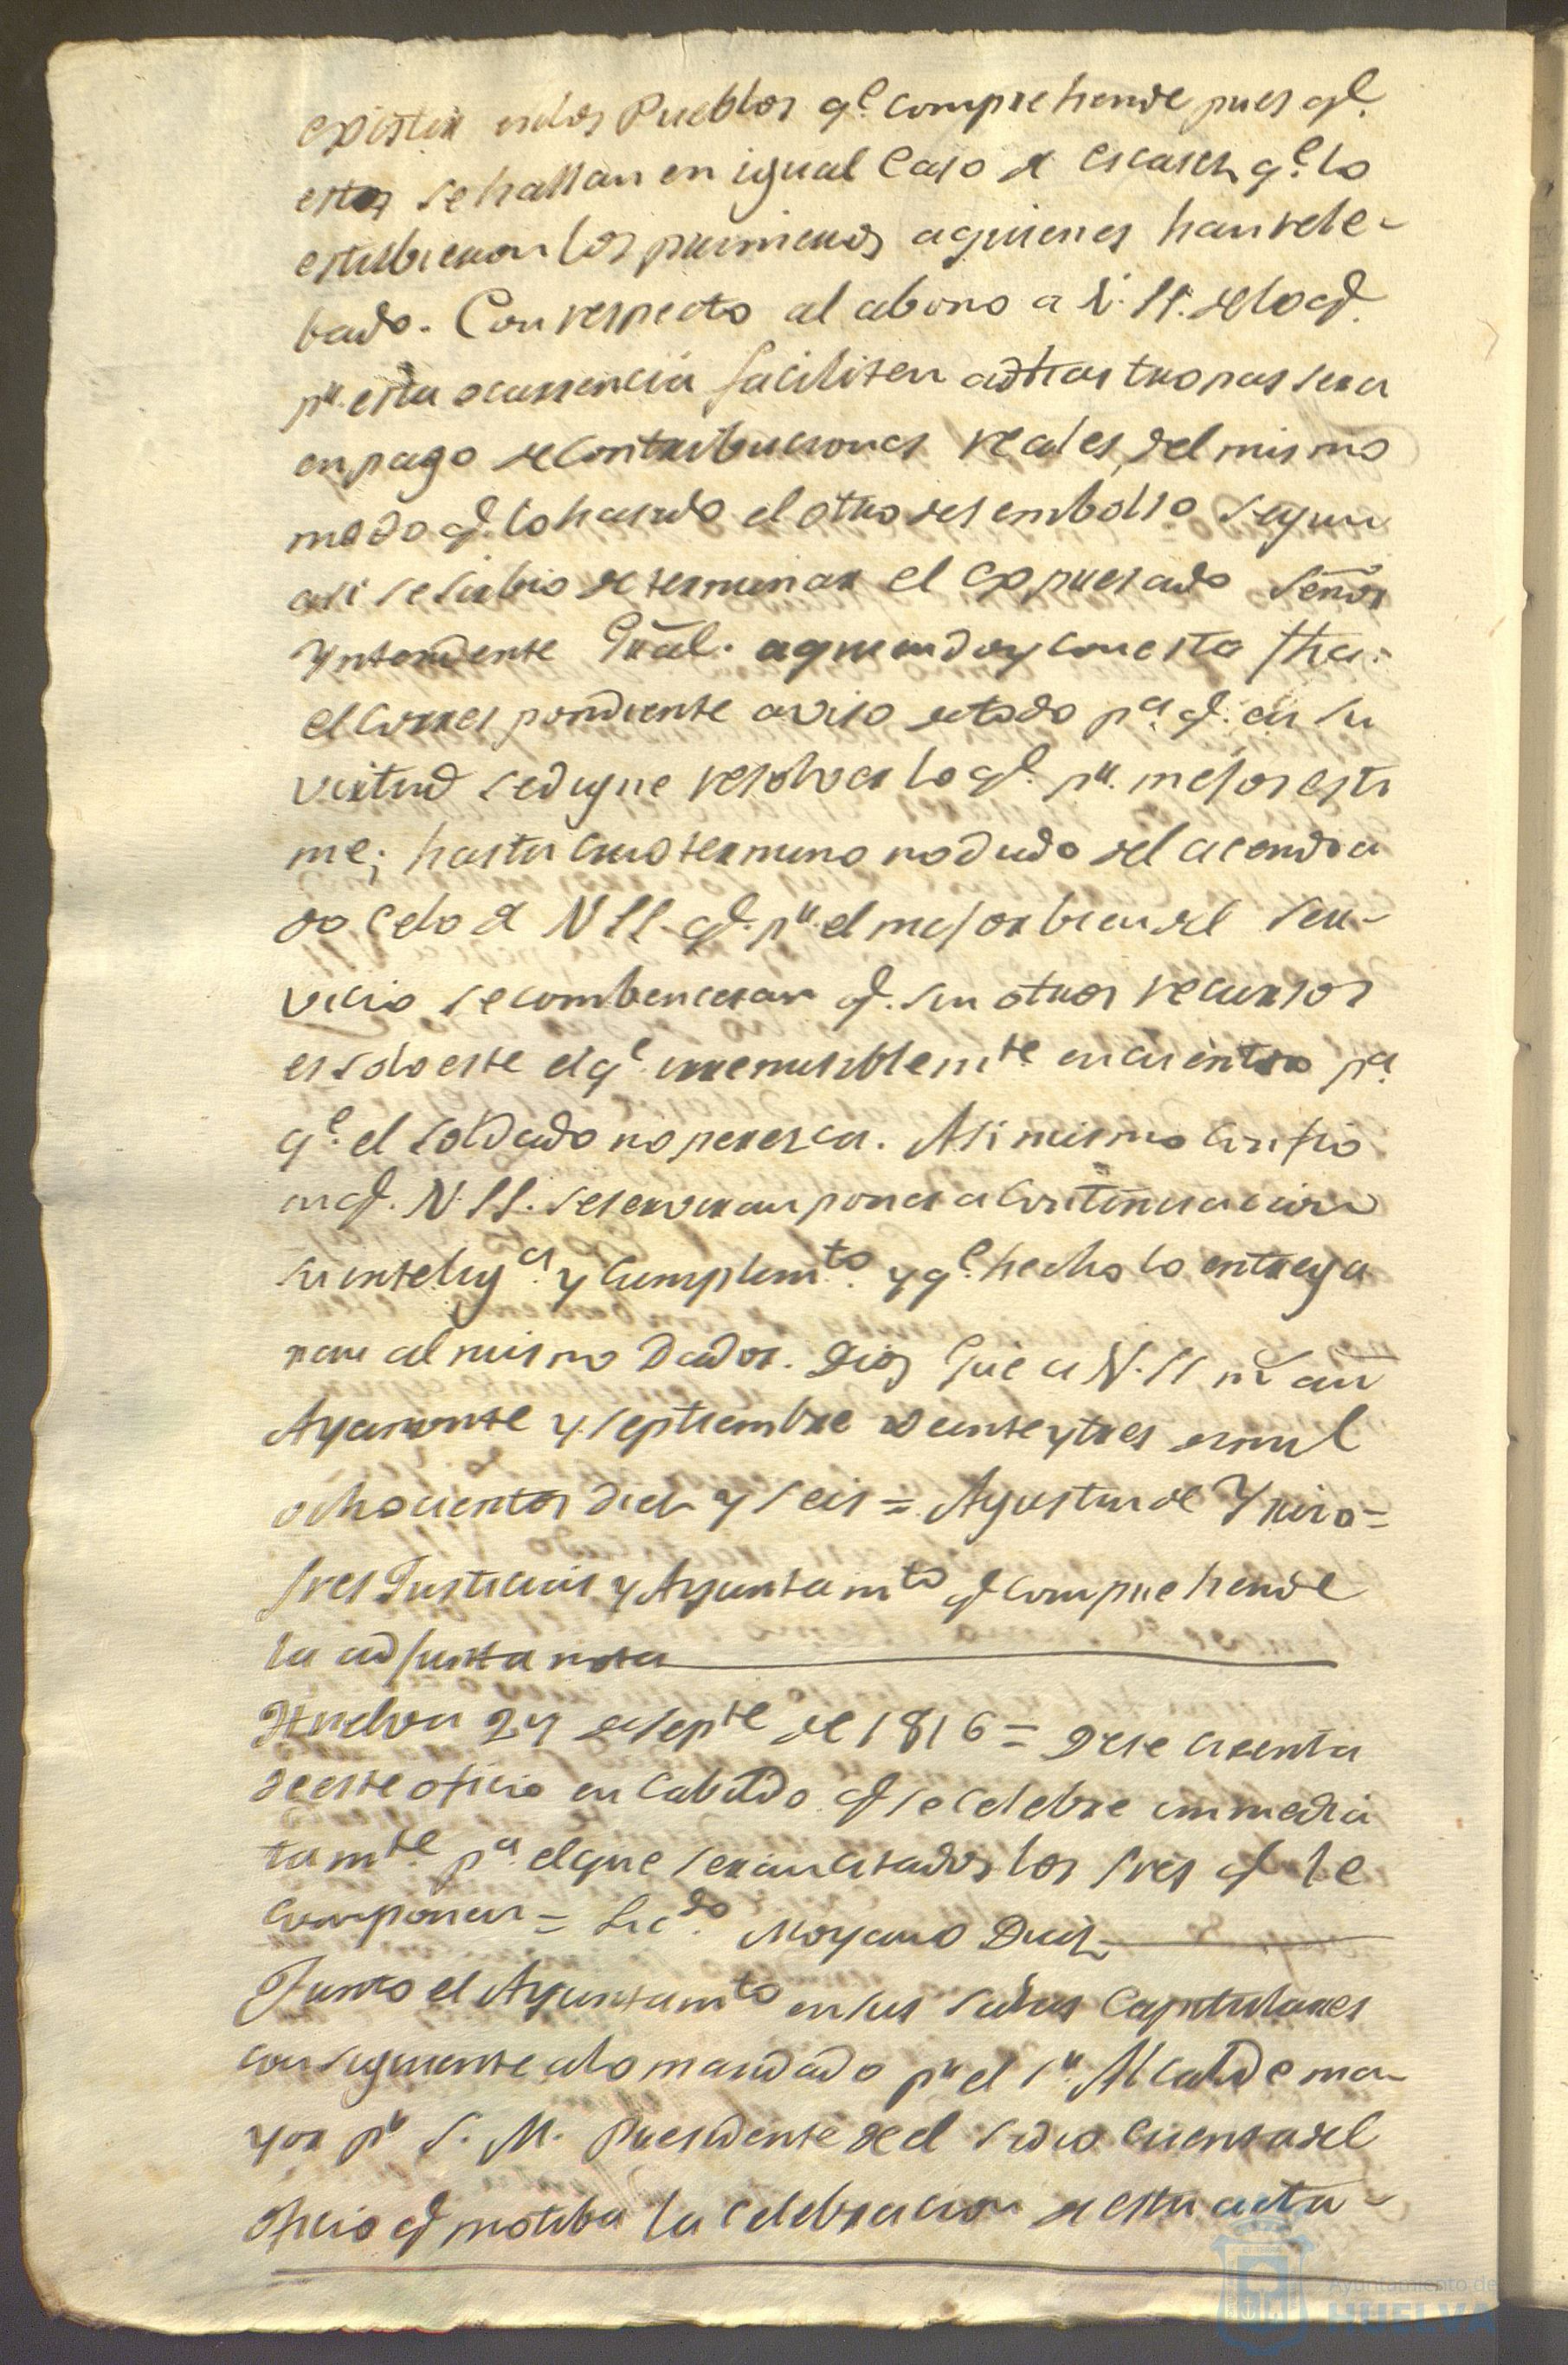 existir en los Pueblos q.e comprehende pues q.e
estos se hallan en igual caso de escases q.e lo
estubieron los primeros aquienes han rele-
bado. Con respecto al abono a V. SS. de lo q.e
p.r esta ocurrencia faciliten a dhas tropas sera
en pago de contribuciones reales, del mismo
modo q.e lo ha sido el otro desembolso segun
asi se sirbio determinar el expresado Señor
Yntendente Gral. a quien doy con esta fha.
el correspondiente aviso de todo p.a q.e en su
virtud se digne resolver lo q.e p.r mejor esti
me; hasta cuio termino no dudo del acendra
do celo de V SS. q.e p.r el mejor bien del ser-
vicio se combenceran q.e sin otros recursos
es solo este el q.e irremisiblem.te encuentro p.a
q.e el soldado no peresca. Asi mismo confio
en q.e V. SS. se serviran poner a continuacion
su intelig.a y cumplim.to y q.e hecho lo entrega
ran al mismo Dador. Dios gue a V. SS m.s an.s
Ayamonte y Septiembre veinte y tres de mil
ochocientos diez y seis = Agustin de
Sres Justicias y Ayuntam.to q.e comprehende
la adjunta nota
Huelva 24 de Sep.te de 1816 = Dese cuenta
de este oficio en Cabildo q.e se celebre immedia
tam.te p.a el que seran citados los Sres q.e le
componen = Lic.do Moyano Diez
Junto el Ayuntam.to en sus Salas Capitulares
consiguiente a lo mandado p.r el S.r Alcalde ma-
yor p.r S. M. Presidente de el se dio cuenta del
oficio q.e motiba la celebracion de esta acta-
Ayuntamiento de
HUELVA